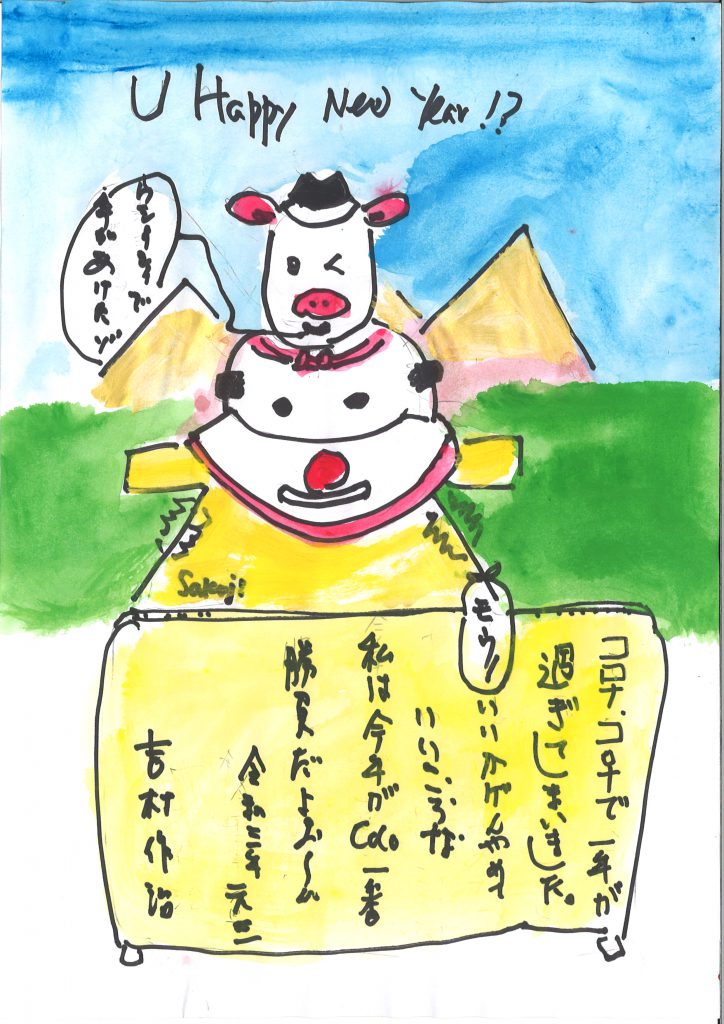 U Happy New Year!?
年があけたゾ
Sakuji
コロナ、コロナで一年が
過ぎてしまいました。
モウ!
いいかげんやめて
いいころな
私は今年がCoCo一番
勝負だよぶ〜ん
令和三年 元旦
吉村作治